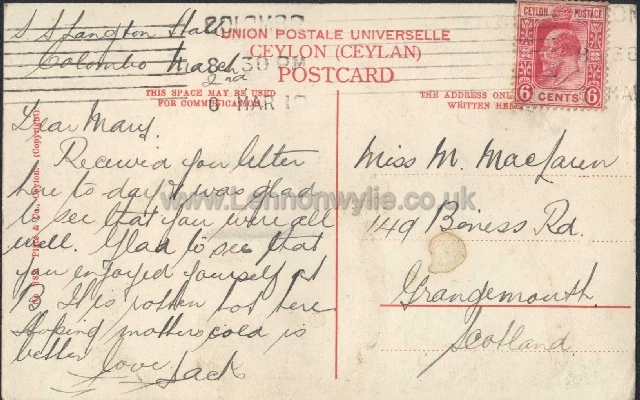 S S Langton Hall
Colombo March
2nd
COLOMBO
8 30 PM
6 MAR
UNION POSTALE UNIVERSELLE
CEYLON (CEYLAN)
POSTCARD
THIS SPACE MAY BE USED
FOR COMMUNICATION
THE ADDRESS ONL
WRITTEN HE
CEYLON POSTAGE
6 CENTS 6
Dear Mary.
Received you letter
here to day & was glad
to see that you were all
well. Glad to see that
you enjoyed yourself at
B. It is rotten hot here
Hoping mothers cold is
better
love Jack
Miss M. MacLaren
149 Boness Rd.
Grangemouth.
Scotland.
www.Lennonwylie.co.uk
& Co., Ceylon. (Copyright)